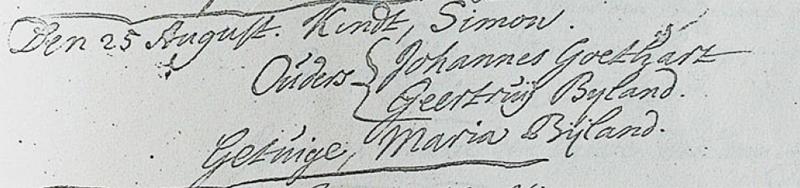 Den 25 August. Kindt, Simon.
Ouders Johannes Goethart
Geertruij Byland.
Getuige, Maria Byland.